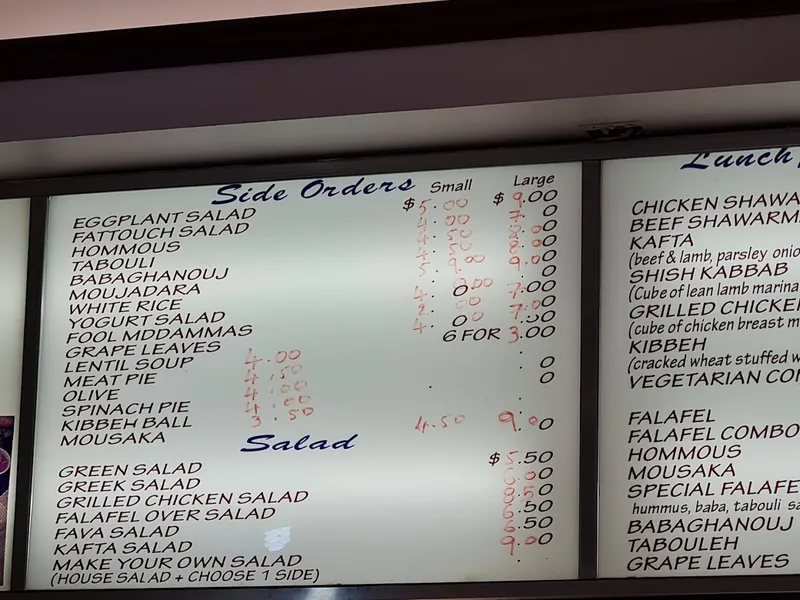 Side Orders Small Large
EGGPLANT SALAD $5.00 $9.00
FATTOUCH SALAD
HOMMOUS
TABOULI
BABAGHANOUJ
MOUJADARA
WHITE RICE
YOGURT SALAD
FOOL MDDAMMAS
GRAPE LEAVES 6 FOR 3.00
LENTIL SOUP 4.00
MEAT PIE 4.50
OLIVE 4.00
SPINACH PIE 4.00
KIBBEH BALL 3.50
MOUSAKA 4.50 9.00
Salad
GREEN SALAD $5.50
GREEK SALAD
GRILLED CHICKEN SALAD
FALAFEL OVER SALAD
FAVA SALAD
KAFTA SALAD 9.00
MAKE YOUR OWN SALAD
(HOUSE SALAD + CHOOSE 1 SIDE)
Lunch
CHICKEN SHAWA
BEEF SHAWARM
KAFTA
(beef & lamb, parsley onio
SHISH KABBAB
(Cube of lean lamb marina
GRILLED CHICKE
(cube of chicken breast m
KIBBEH
(cracked wheat stuffed w
VEGETARIAN CO
FALAFEL
FALAFEL COMBO
HOMMOUS
MOUSAKA
SPECIAL FALAFE
hummus, baba, tabouli sa
BABAGHANOUJ
TABOULEH
GRAPE LEAVES